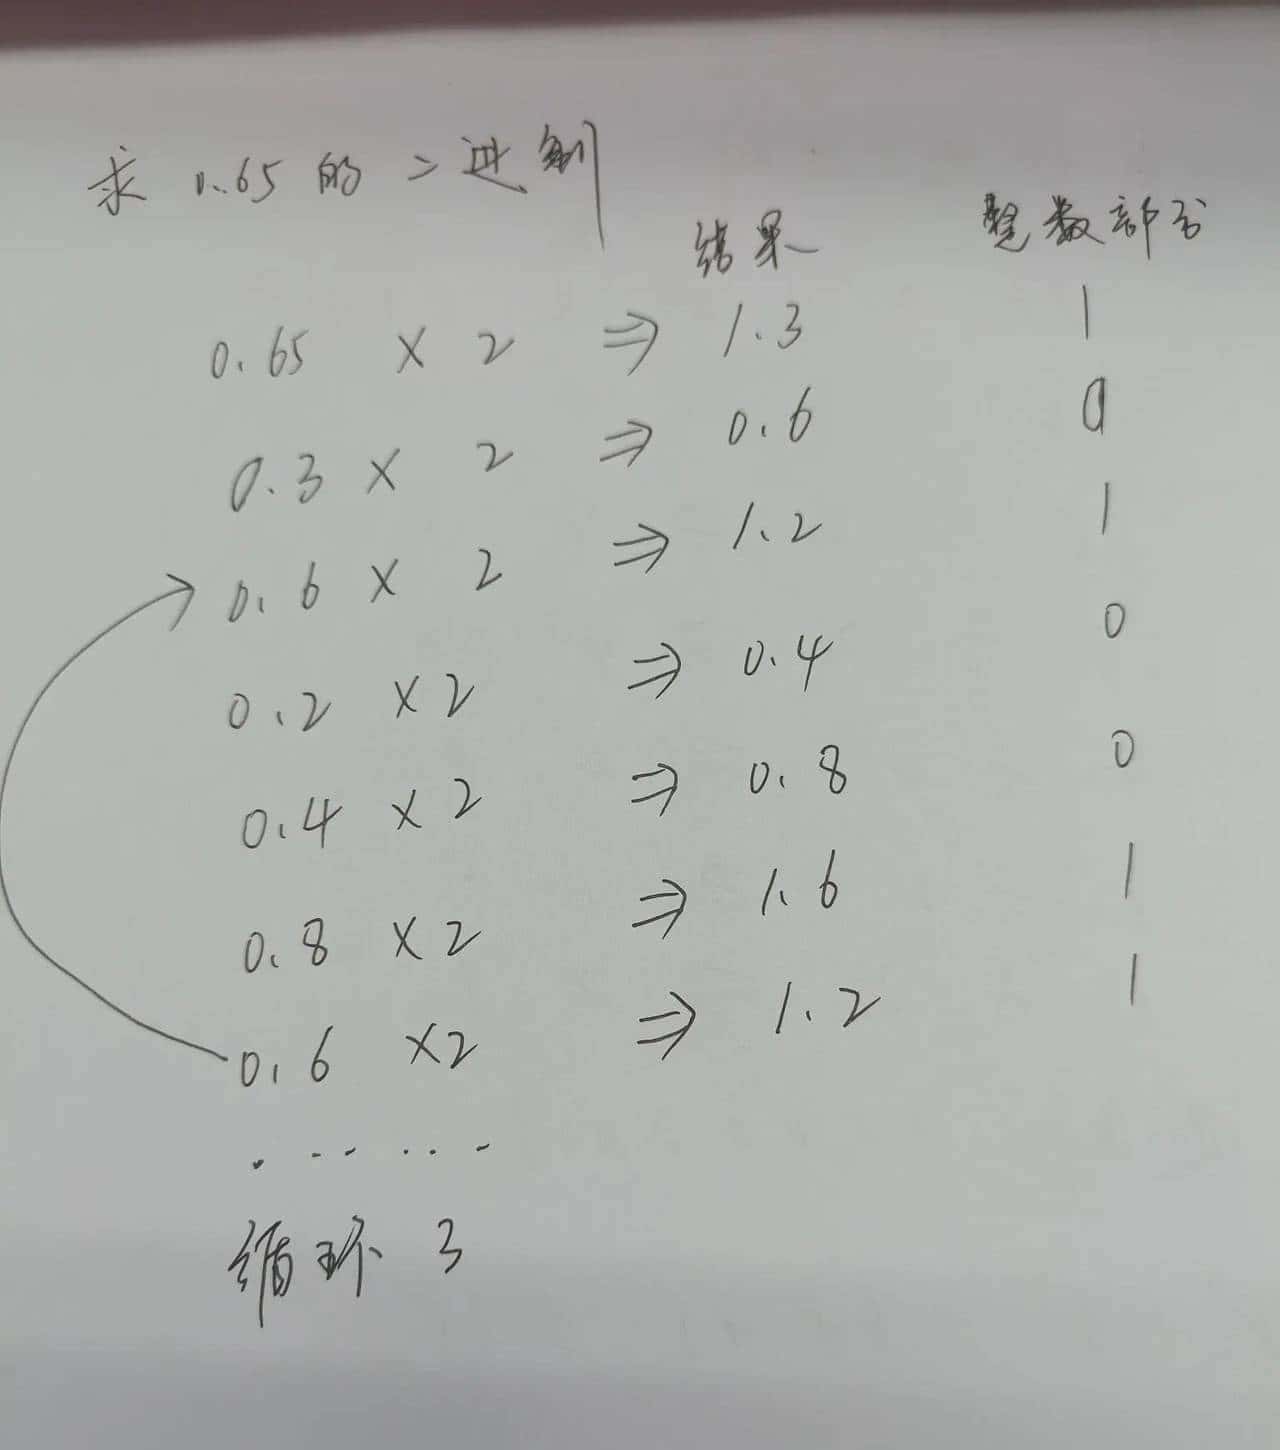 求 0.65 的 二 进制
结果 整数部分
0.65 × 2 ⇒ 1.3 1
0.3 × 2 ⇒ 0.6 0
0.6 × 2 ⇒ 1.2 1
0.2 × 2 ⇒ 0.4 0
0.4 × 2 ⇒ 0.8 0
0.8 × 2 ⇒ 1.6 1
0.6 × 2 ⇒ 1.2 1
......
循环 了